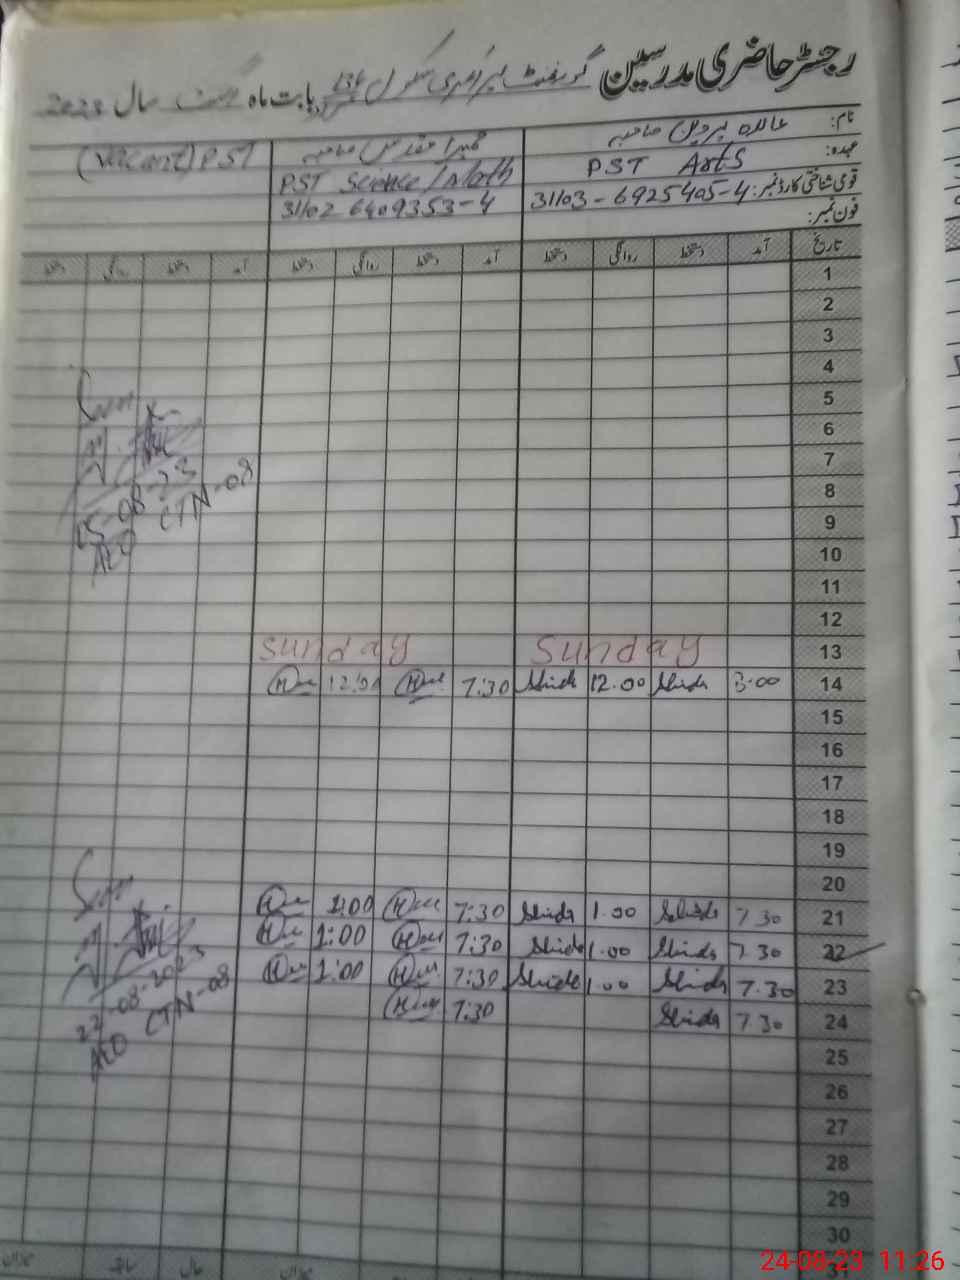 رجسٹر حاضری مدرسین گورنمنٹ پرائمری سکول بابت ماہ اگست سال 2023
نام: عائدہ پروین صاحبہ حمیرا مقدس صاحبہ (Vacant) PST
عہدہ: PST Arts PST Science/Math
قومی شناختی کارڈ نمبر: 31103-6925405-4 31102 6409353-4
فون نمبر:
تاریخ آمد دستخط روانگی دستخط آمد دستخط روانگی دستخط آمد دستخط روانگی دستخط
1
2
3
4
5
6
7
8
05-08-23 CTN-08
9
AEO
10
11
12
13 Sunday Sunday
14 8:00 12.00 7:30 12:00
15
16
17
18
19
20
21 7.30 1.00 7:30 1:00
22 7.30 1.00 7:30 1:00
23 7.30 1.00 7:30 1:00
22-08-2023 CTN-08
24 7.30 7:30
AEO
25
26
27
28
29
30
31
24-08-23 11:26